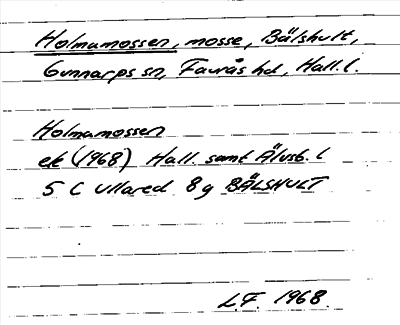 Holmamossen, mosse, Bälshult,
Gunnarps sn, Faurås hd, Hall. l.
Holmamossen
ek (1968) Hall. samt Älvsb. l
5 C Ullared 8g BÄLSHULT
L.F. 1968.